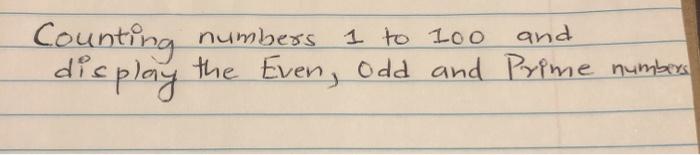 Counting numbers 1 to 100 and
display the Even, Odd and Prime numbers